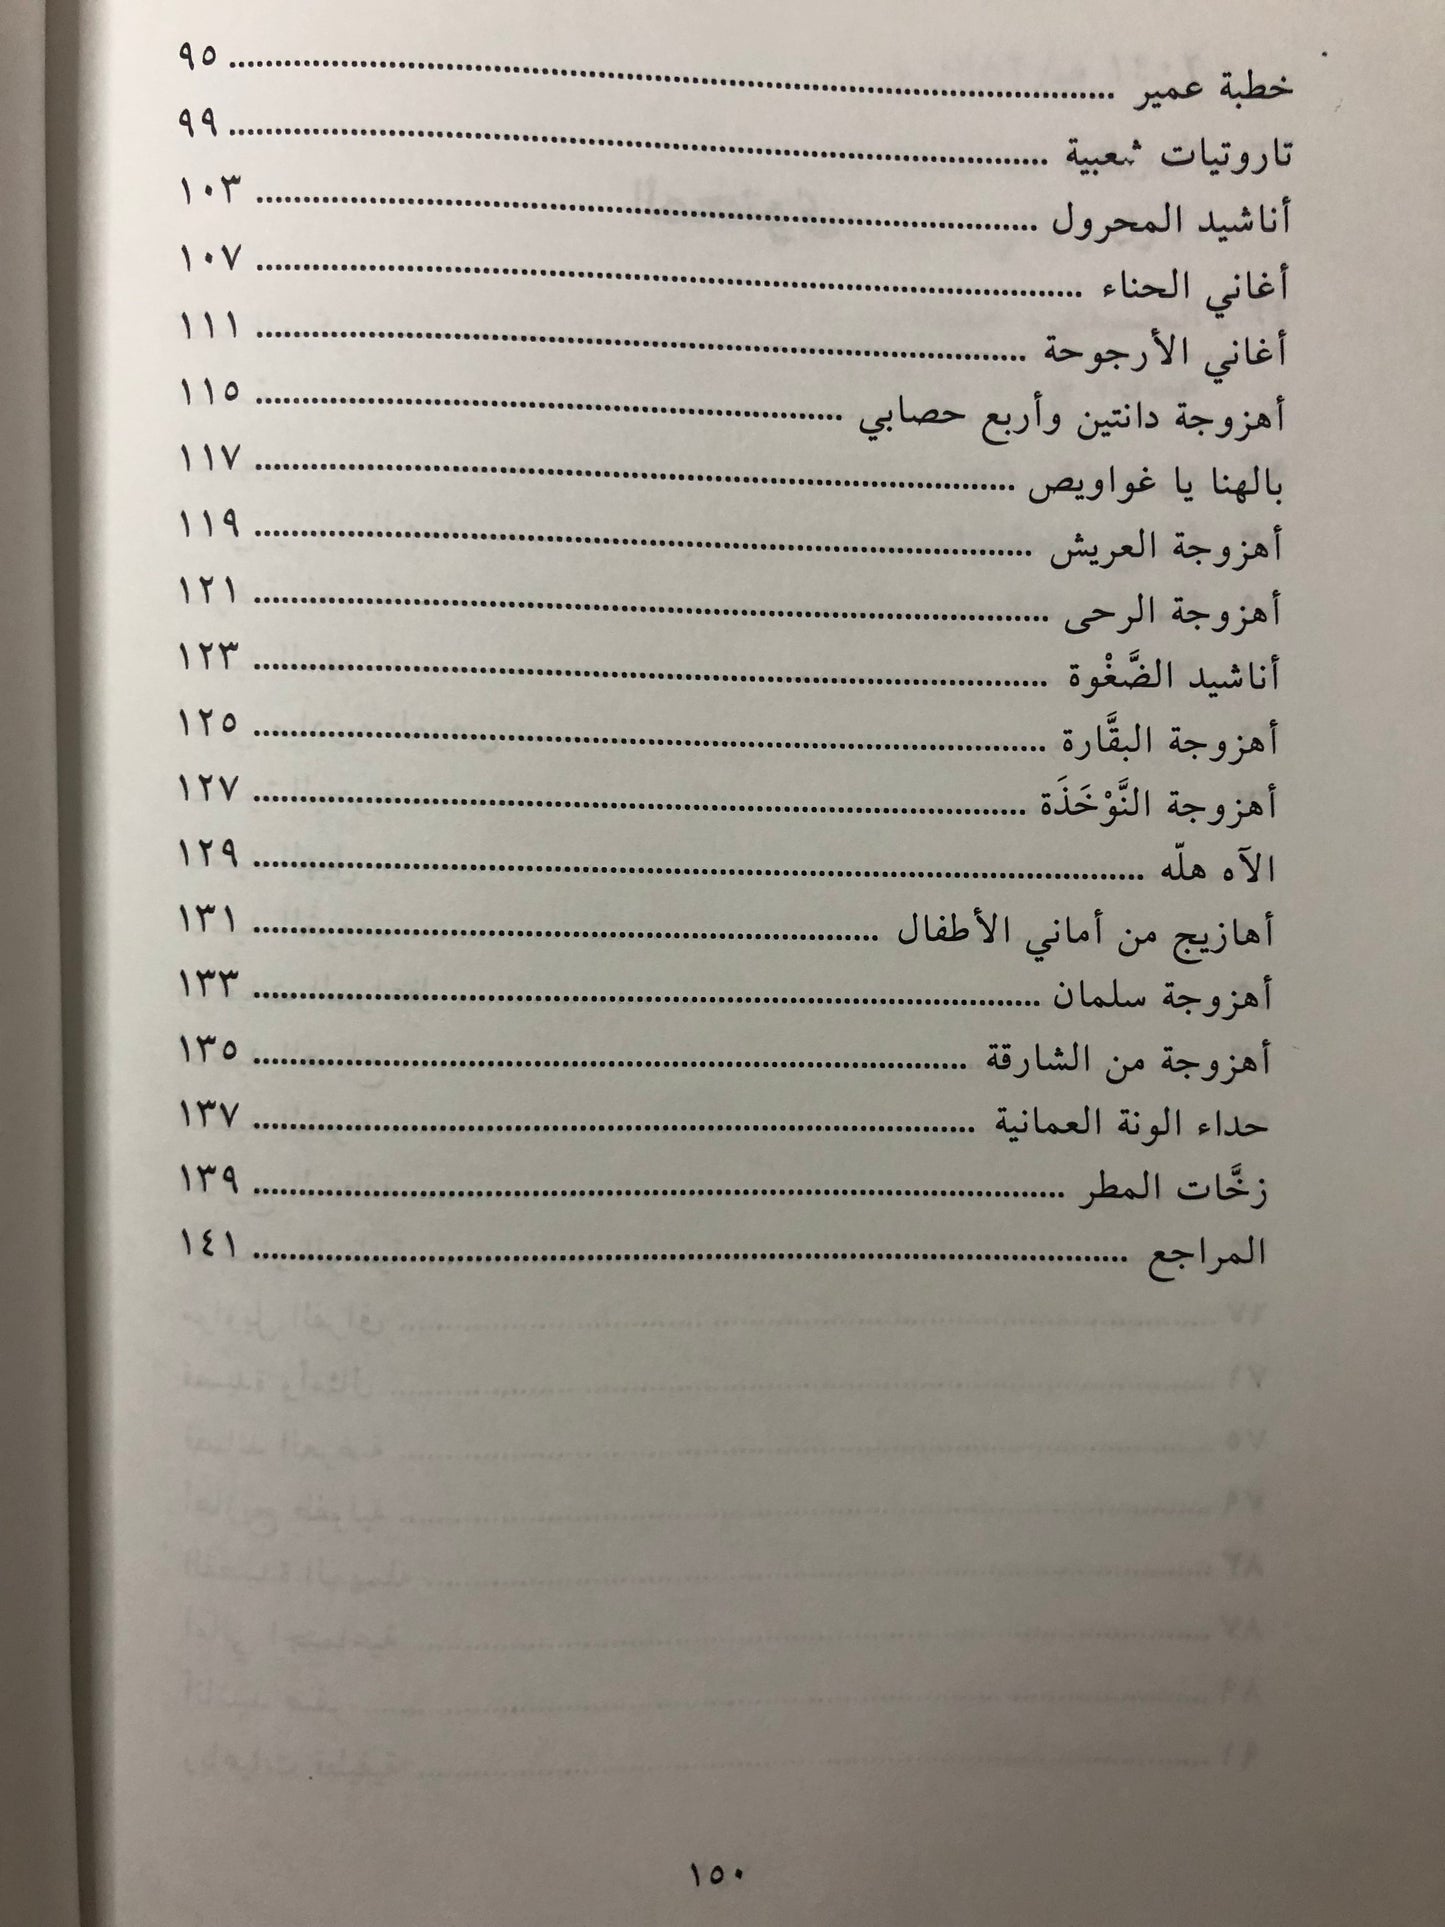 خطبة عمير ........ ٩٥
تاروتيات شعبية ........ ٩٩
أناشيد المحرول ........ ١٠٣
أغاني الحناء ........ ١٠٧
أغاني الأرجوحة ........ ١١١
أهزوجة دانتين وأربع حصابي ........ ١١٥
بالهنا يا غواويص ........ ١١٧
أهزوجة العريش ........ ١١٩
أهزوجة الرحى ........ ١٢١
أناشيد الضَّغْوة ........ ١٢٣
أهزوجة البقَّارة ........ ١٢٥
أهزوجة النَّوْخَذَة ........ ١٢٧
الآه هلّه ........ ١٢٩
أهازيج من أماني الأطفال ........ ١٣١
أهزوجة سلمان ........ ١٣٣
أهزوجة من الشارقة ........ ١٣٥
حداء الونة العمانية ........ ١٣٧
زخَّات المطر ........ ١٣٩
المراجع ........ ١٤١
١٥٠